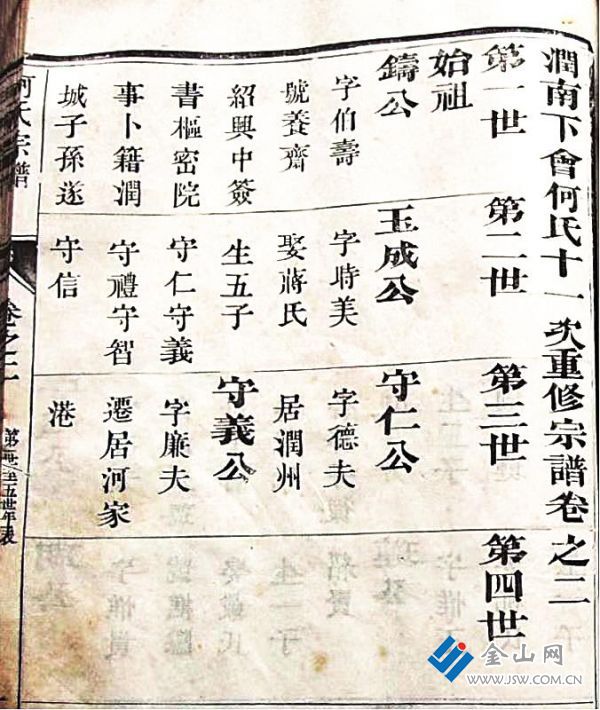 潤南下會何氏十一次重修宗譜卷之二
第一世
始祖
鑄公
字伯壽
號養齋
紹興中簽
書樞密院
事卜籍潤
城子孫遂
第二世
玉成公
字時美
娶蔣氏
生五子
守仁守義
守禮守智
守信
第三世
守仁公
字德夫
居潤州
守義公
字廉夫
遷居河家
港
第四世
何氏宗譜
卷之二
金山网
WWW.JSW.COM.CN